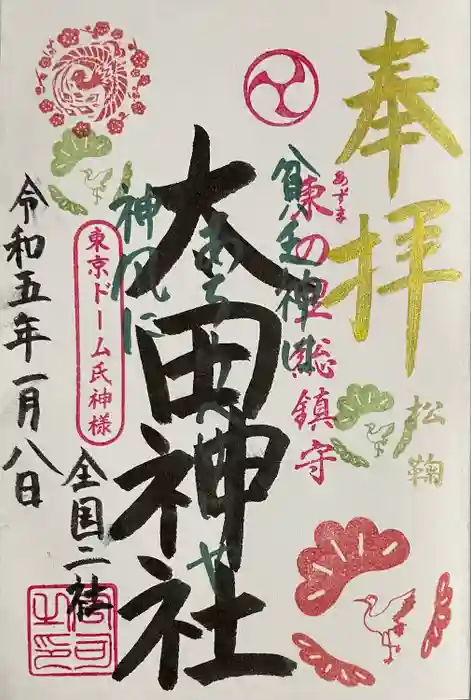 奉拝
松鞠
あずま
東の
総鎮守
貧乏神は
大田神社
神風に
東京ドーム氏神様
全国二社
令和五年一月八日